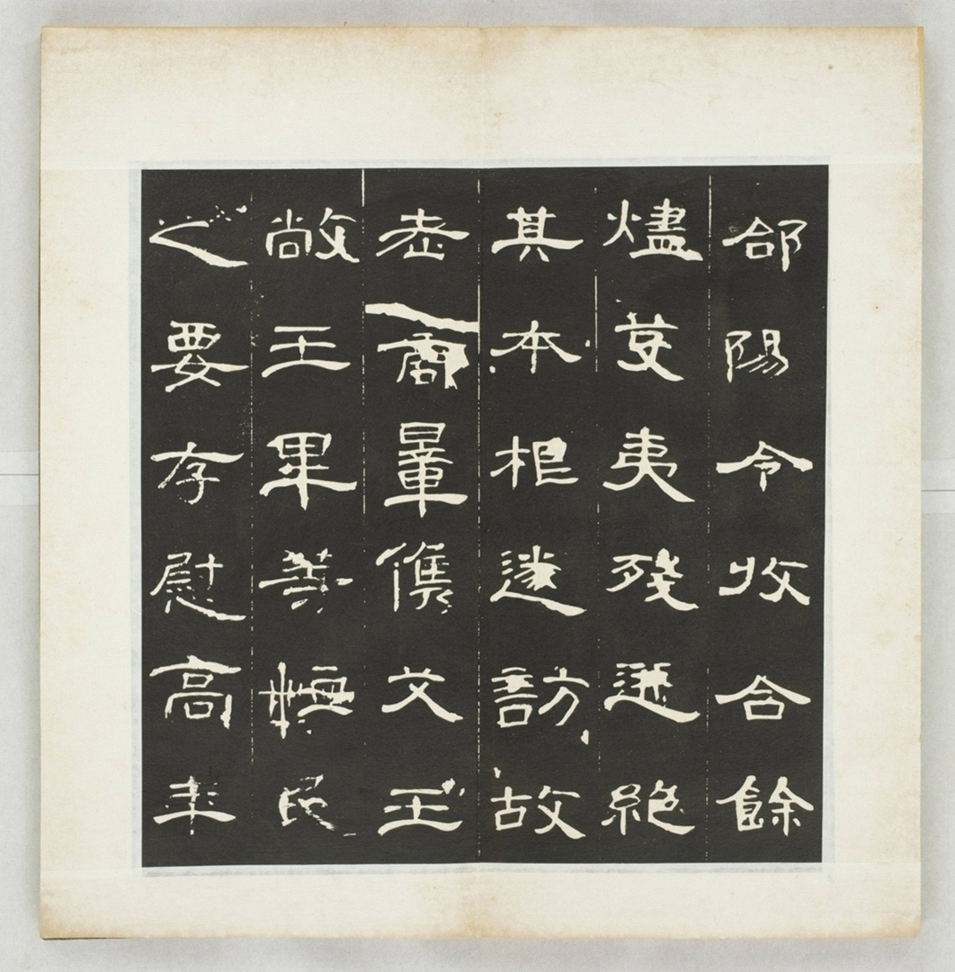 郃陽令收合餘
燼芟夷殘迸絕
其本根遂訪故
老商量儁艾王
敞王畢等恤民
之要存慰高年